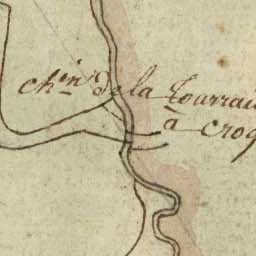 ch.in de la Tourrai
à croq